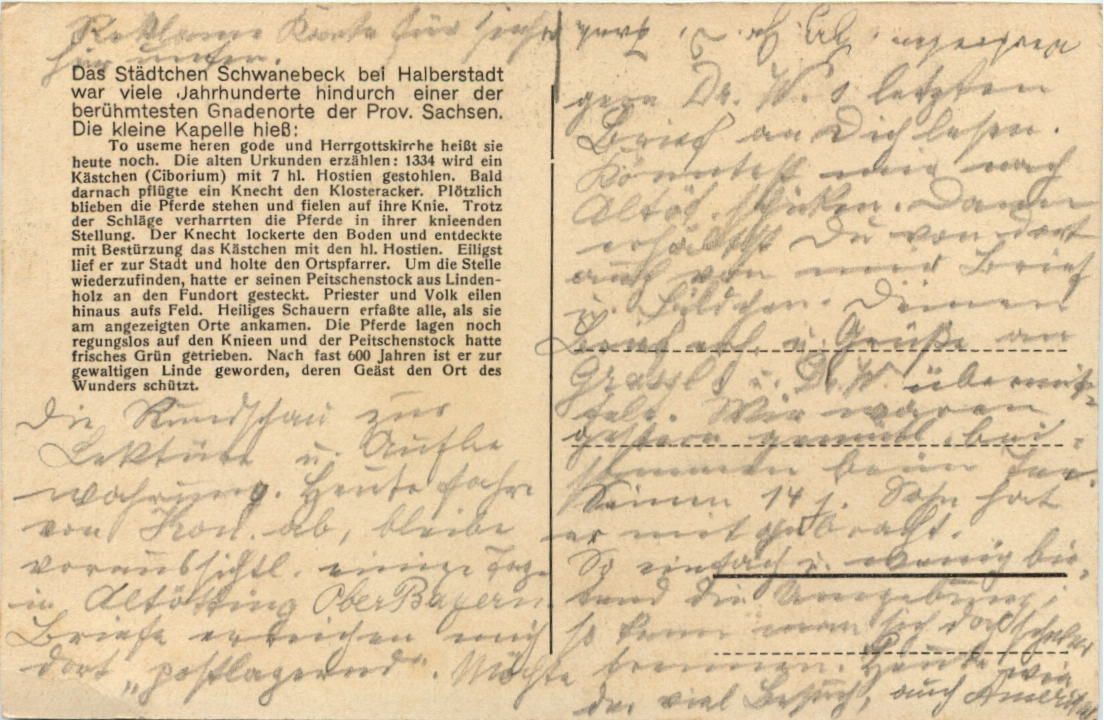 Reklame Karte für
hier unten.
Das Städtchen Schwanebeck bei Halberstadt
war viele Jahrhunderte hindurch einer der
berühmtesten Gnadenorte der Prov. Sachsen.
Die kleine Kapelle hieß:
To useme heren gode und Herrgottskirche heißt sie
heute noch. Die alten Urkunden erzählen: 1334 wird ein
Kästchen (Ciborium) mit 7 hl. Hostien gestohlen. Bald
darnach pflügte ein Knecht den Klosteracker. Plötzlich
blieben die Pferde stehen und fielen auf ihre Knie. Trotz
der Schläge verharrten die Pferde in ihrer knieenden
Stellung. Der Knecht lockerte den Boden und entdeckte
mit Bestürzung das Kästchen mit den hl. Hostien. Eiligst
lief er zur Stadt und holte den Ortspfarrer. Um die Stelle
wiederzufinden, hatte er seinen Peitschenstock aus Linden-
holz an den Fundort gesteckt. Priester und Volk eilen
hinaus aufs Feld. Heiliges Schauern erfaßte alle, als sie
am angezeigten Orte ankamen. Die Pferde lagen noch
regungslos auf den Knieen und der Peitschenstock hatte
frisches Grün getrieben. Nach fast 600 Jahren ist er zur
gewaltigen Linde geworden, deren Geäst den Ort des
Wunders schützt.
Die Rundschau zur
Lektüre u. Aufbe
wahrung. Heute fahre
von Kon. ab, bleibe
voraussichtl. einige Tage
in Altötting Ober Bayern.
Briefe erreichen mich
dort "postlagernd". Möchte
gern Dr. W.s letzten
Brief an Dich lesen.
Könntest mir nach
Altöt. schicken. Dann
erhältst Du von dort
auch von mir Brief
u. Bildchen. Deinen
Brief erh. u. Grüße an
u. Dr. W. übermit-
telt. Wir waren
gestern gemütl. bei-
sammen beim
Seinen 14 j. Sohn hat
er mitgebracht.
So einfach u. wenig bie-
tend die Umgebung,
so kann man sich doch schwer
trennen. Heute wie-
der viel Besuch, auch Amerika